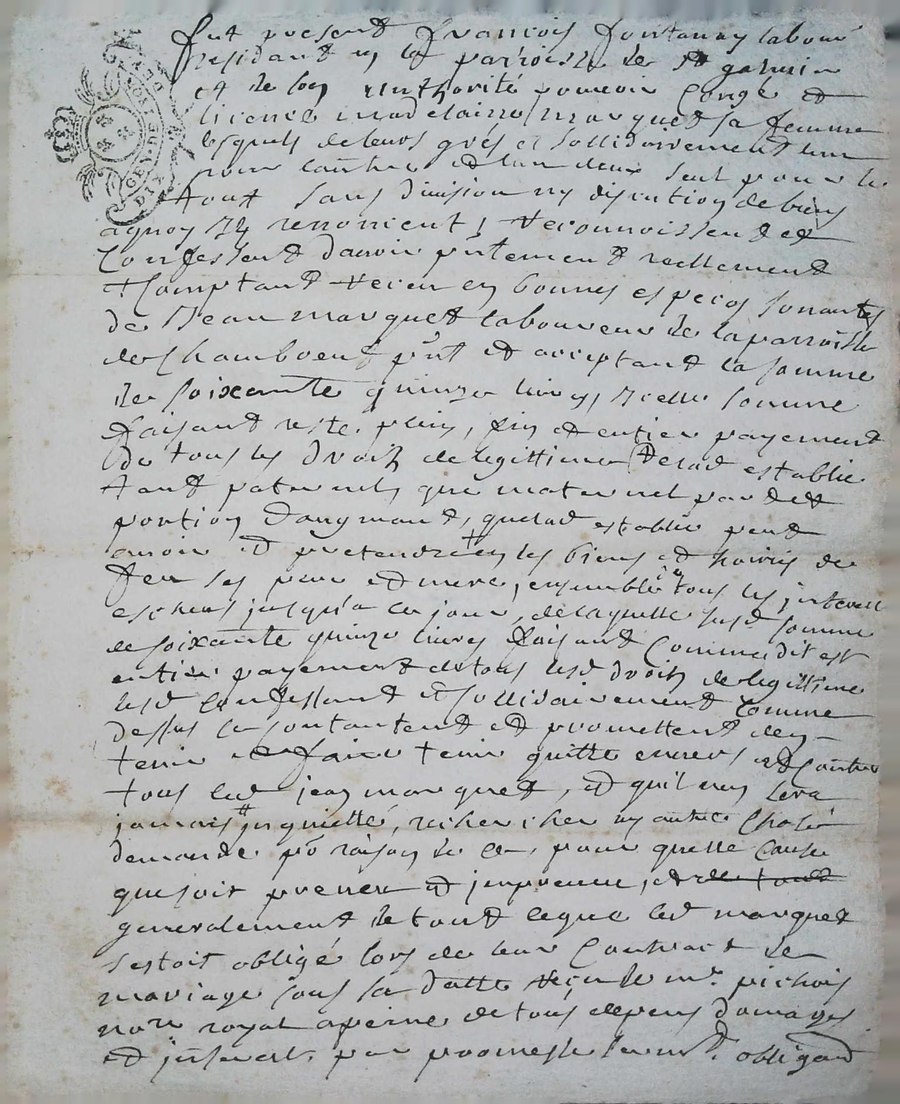 GEN. DE LYON
DIX DEN.
fut present françois fontanay laboure
residant en la parroisse de St galmier
et de son authorité pouvoir congé et
licence mad claire marquet sa femme
lesquels de leurs grés et sollidairement lun
pour lautre et lun deux seul pour le
tout sans division ny discution de biens
aquoy Ils renoncent, reconnoissent et
Confessent davoir pntement reellement
et comptant receu en bonnes especes sonnantes
de Jean marquet laboureur de la parroisse
de Chambœuf pnt et acceptant la somme
de soixante quinze livres, Icelle somme
faisant reste, plein, fin et entier payement
de tous les droits de legittime lad establie
tant paternels que maternel par et
portion daugmant, que lad establie peut
avoir et pretendre en les biens et hoiries de
feu ses pere et mere, ensemble tous les interest
escheus jusqu'a ce jour, de laquelle susd somme
de soixante quinze livres faisant comme dit est
entier payement de tous lesd droits de legittime
lesd confessant et sollidairement comme
dessus se contantent et promettent den
tenir et faire tenir quitte envers et contre
tous led jean marquet, et quil nen sera
jamais inquietté, recherché ny autre chose
demandé po raison de ce, pour quelle cause
que soit preveu et impreveu, et de tout
generalement de tout ce que led marquet
sestoit obligé lors de leur Contract de
mariage sous sa datte reçu de me pichois
nore royal a peine de tous depens domages
et interest. par promesse serment obligaon